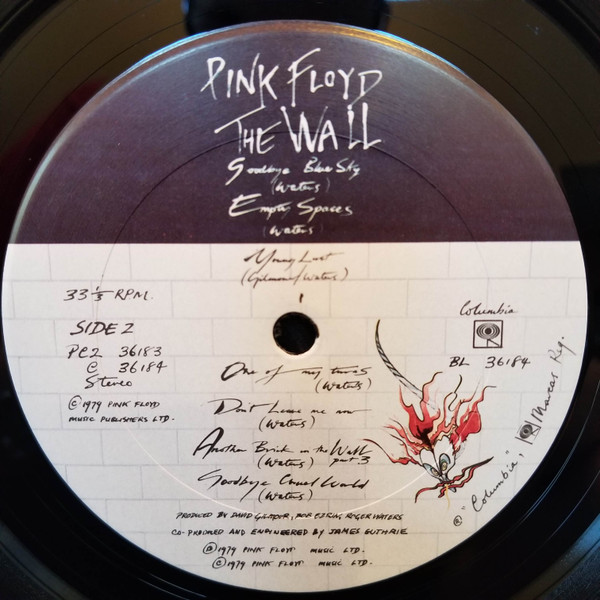 PINK FLOYD
THE WALL
Goodbye Blue Sky
(Waters)
Empty Spaces
(Waters)
Young Lust
(Gilmour/Waters)
33 1/3 RPM.
SIDE 2
PC2 36183
C 36184
Stereo
© 1979 PINK FLOYD
MUSIC PUBLISHERS LTD.
Columbia
BL 36184
One of my turns
(Waters)
Don't Leave me now
(Waters)
Another Brick in the Wall
(Waters) part 3
Goodbye Cruel World
(Waters)
® "Columbia", Marcas Reg.
PRODUCED BY DAVID GILMOUR, BOB EZRIN, ROGER WATERS
CO-PRODUCED AND ENGINEERED BY JAMES GUTHRIE
℗ 1979 PINK FLOYD MUSIC LTD.
© 1979 PINK FLOYD MUSIC LTD.